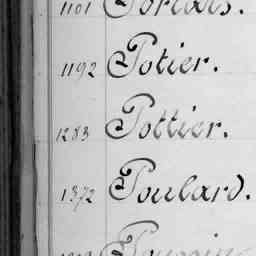 1101
1192 Potier.
1283 Pottier.
1372 Poulard.